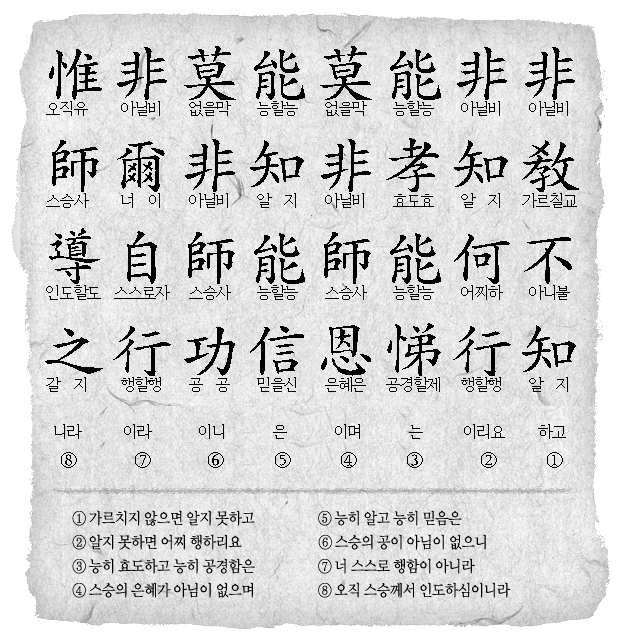 非 아닐비 教 가르칠교 不 아니불 知 알 지 하고 ①
非 아닐비 知 알 지 何 어찌하 行 행할행 이리요 ②
能 능할능 孝 효도효 能 능할능 悌 공경할제 는 ③
莫 없을막 非 아닐비 師 스승사 恩 은혜은 이며 ④
能 능할능 知 알 지 能 능할능 信 믿을신 은 ⑤
莫 없을막 非 아닐비 師 스승사 功 공 공 이니 ⑥
非 아닐비 爾 너 이 自 스스로자 行 행할행 이라 ⑦
惟 오직유 師 스승사 導 인도할도 之 갈 지 니라 ⑧
① 가르치지 않으면 알지 못하고
② 알지 못하면 어찌 행하리요
③ 능히 효도하고 능히 공경함은
④ 스승의 은혜가 아님이 없으며
⑤ 능히 알고 능히 믿음은
⑥ 스승의 공이 아님이 없으니
⑦ 너 스스로 행함이 아니라
⑧ 오직 스승께서 인도하심이니라